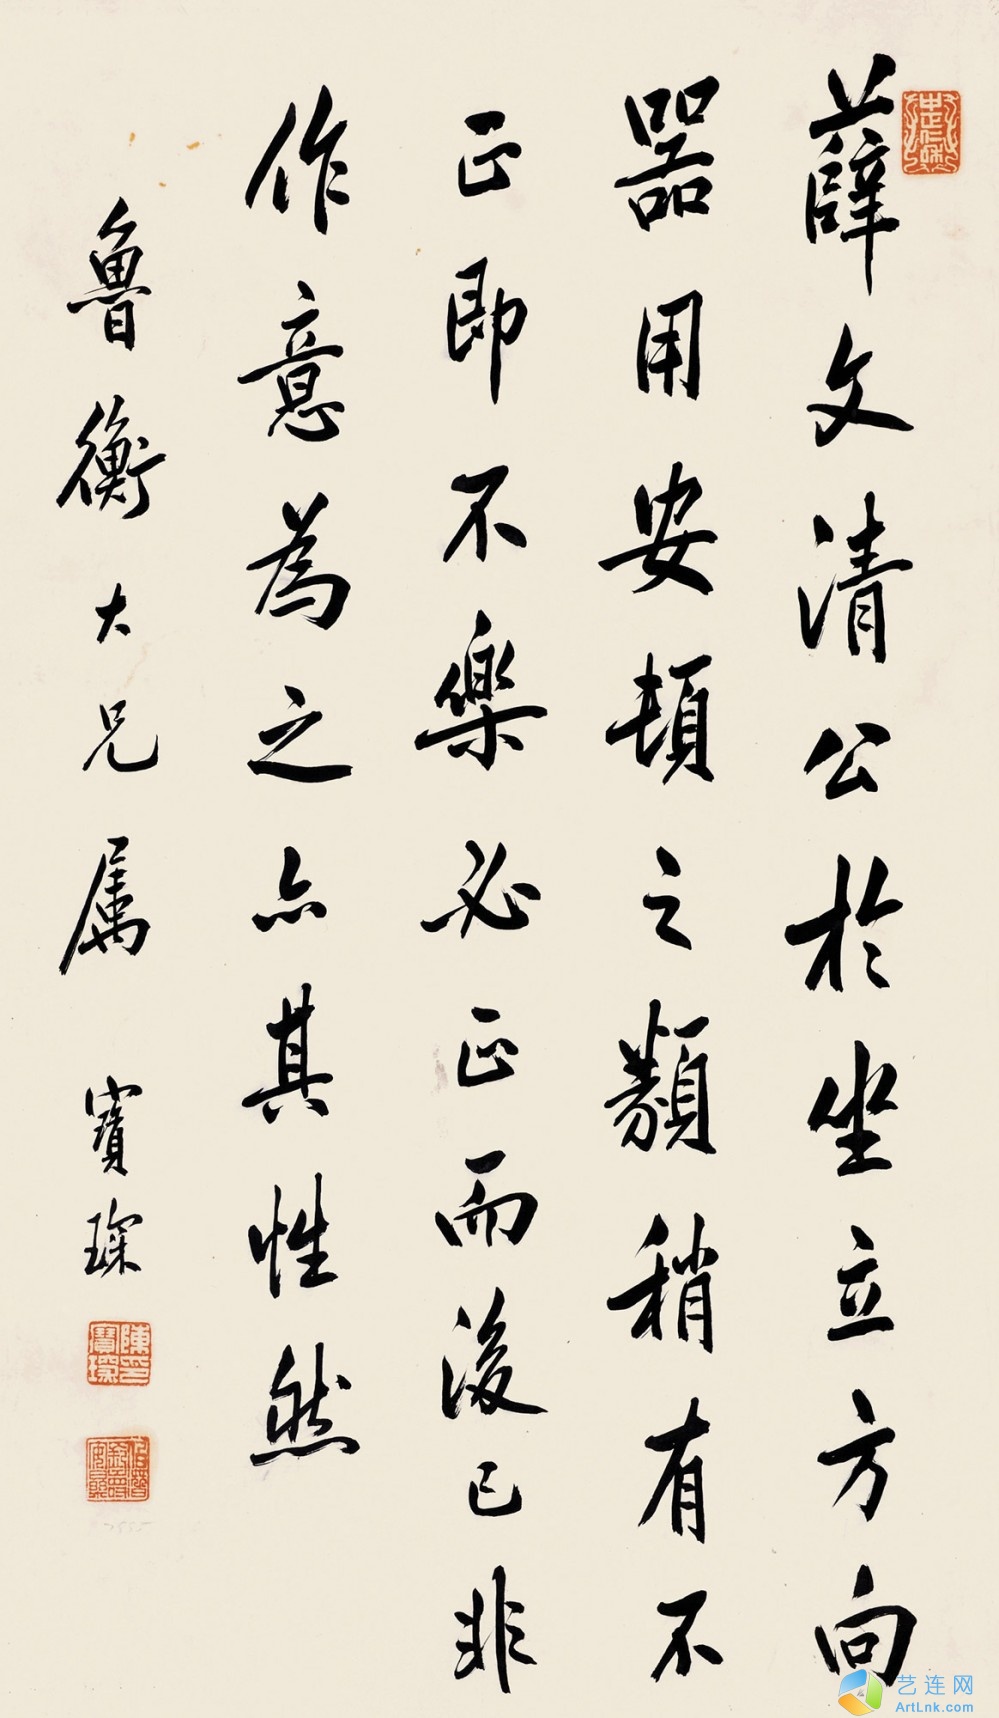 薛文清公於坐立方向
器用安頓之類稍有不
正即不樂必正而後已非
作意為之亦其性然
魯衡大兄屬 寶琛
陳寶琛印
艺连网
ArtLnk.com